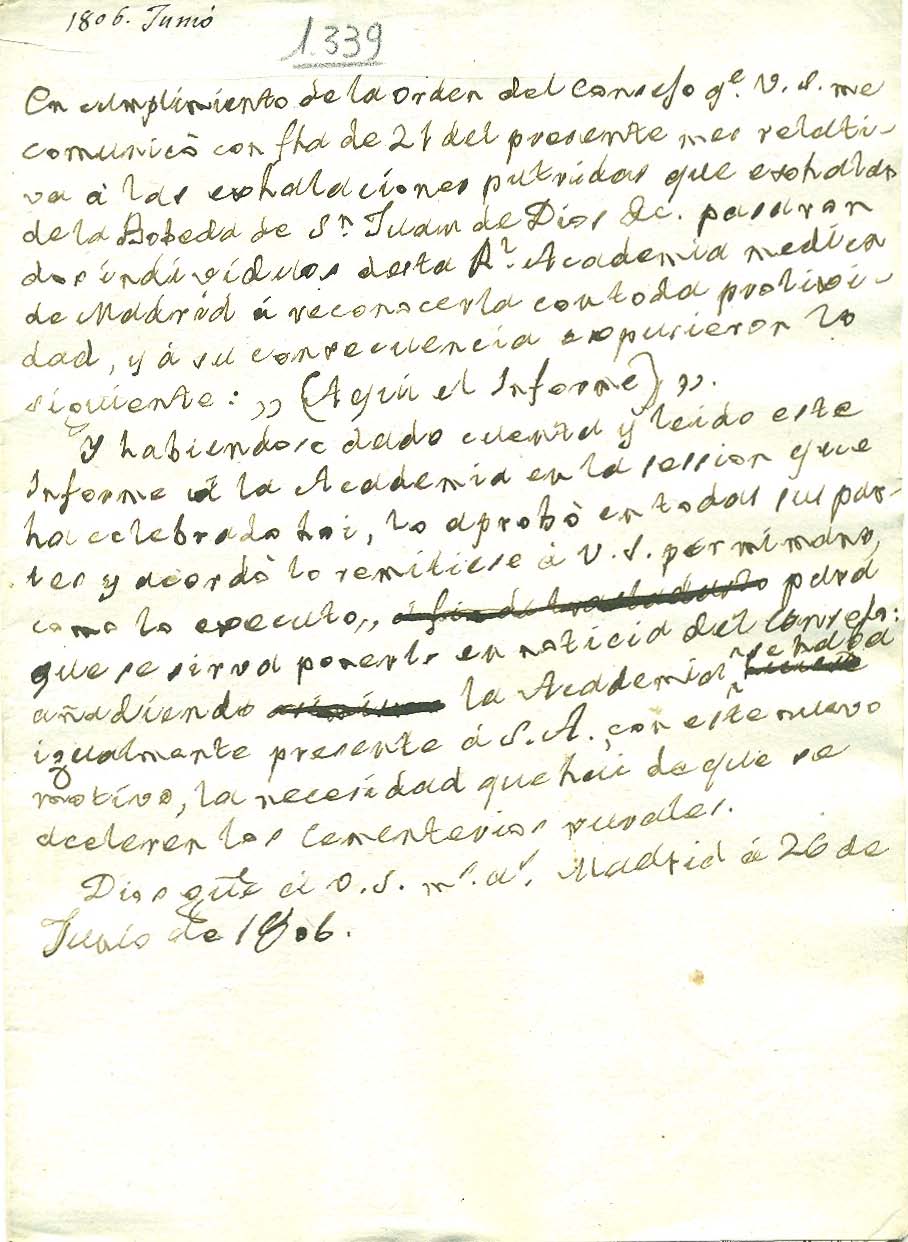 1806. Junio
1.339
En cumplimiento de la orden del Consejo qe. V. S. me
comunicò con fha de 21 del presente mes relati-
va â las exhalaciones putridas que exhalan
de la Bobeda de Sn. Juan de Dios &c. pasaron
dos individuos desta Rl. Academia medica
de Madrid á reconocerla con toda prolixi-
dad, y á su consecuencia expusieron lo
siguiente: ,, (Aqui el Informe) ,,.
Y habiendose dado cuenta y leido este
Informe á la Academia en la session que
ha celebrado hoi, lo aprobò en todas sus par-
tes y acordò lo remitiese á V. S. por mi mano,
como lo executo,, á fin de trasladarlo para
que se sirva ponerlo en noticia del Consejo:
añadiendo la Academia se haga
igualmente presente á S. A., con este nuevo
motivo, la necesidad que hai de que se
aceleren los Cementerios rurales.
Dios gue á V. S. ms. as. Madrid á 26 de
Junio de 1806.